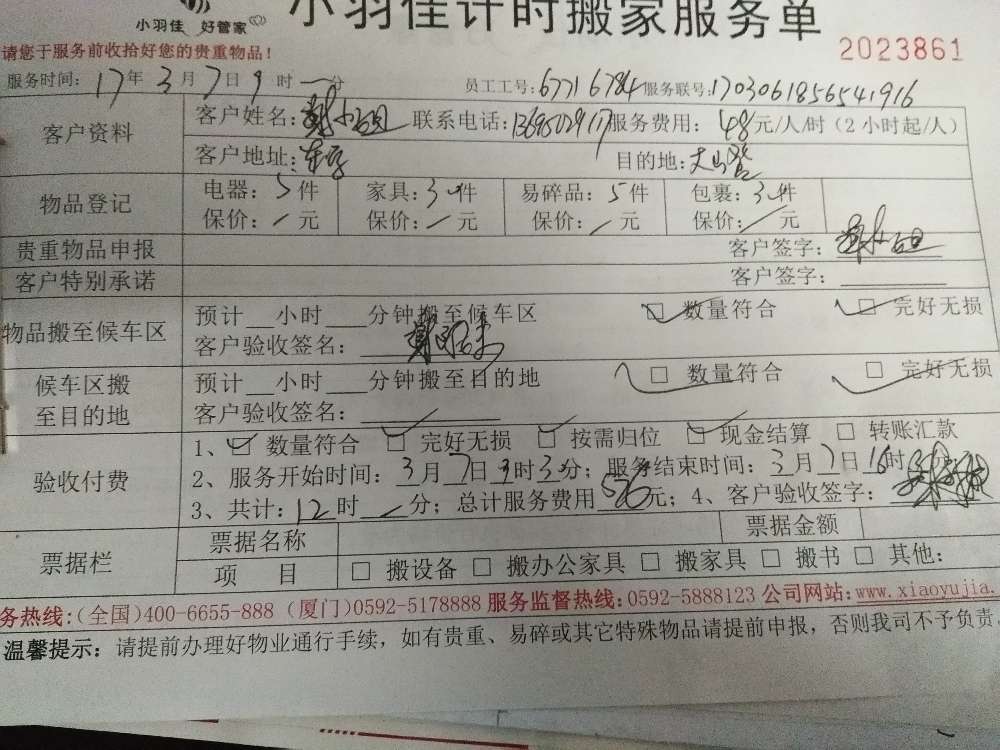 小羽佳 好管家
小羽佳计时搬家服务单
请您于服务前收拾好您的贵重物品！
2023861
服务时间：17年3月7日9时一分 员工工号：67716784 服务联号：1703061856541916
客户资料
客户姓名： 联系电话：13695029117 服务费用：48元/人/时（2小时起/人）
客户地址： 目的地：
物品登记
电器：5件 家具：3件 易碎品：5件 包裹：3件
保价：/元 保价：/元 保价：/元 保价：/元
贵重物品申报 客户签字：
客户特别承诺 客户签字：
物品搬至候车区
预计__小时___分钟搬至候车区 ☑ 数量符合 ☑ 完好无损
客户验收签名：
候车区搬至目的地
预计__小时___分钟搬至目的地 □ 数量符合 □ 完好无损
客户验收签名：
验收付费
1、☑ 数量符合 ☑ 完好无损 ☑ 按需归位 ☑ 现金结算 □ 转账汇款
2、服务开始时间：3月7日9时3分；服务结束时间：3月7日16时
3、共计：12时/分；总计服务费用576元；4、客户验收签字：
票据栏
票据名称 票据金额
项 目 □ 搬设备 □ 搬办公家具 □ 搬家具 □ 搬书 □ 其他：
务热线：(全国)400-6655-888 (厦门)0592-5178888 服务监督热线：0592-5888123 公司网站：www.xiaoyujia.
温馨提示：请提前办理好物业通行手续，如有贵重、易碎或其它特殊物品请提前申报，否则我司不予负责